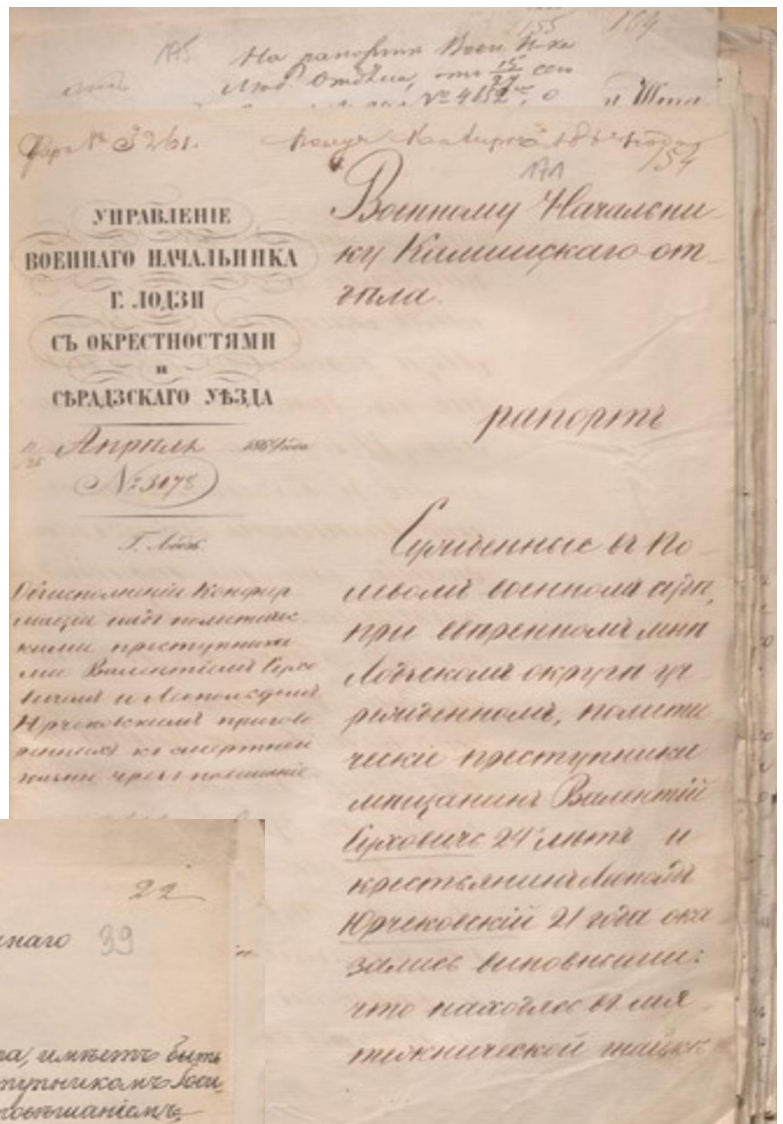 155 164
175 На рапортъ Воен. Н-ка
Лод. Отдѣла, отъ 15/27 сен
№ 4852, о
№ 3261.
154
171
УПРАВЛЕНІЕ
ВОЕННАГО НАЧАЛЬНИКА
Г. ЛОДЗИ
СЪ ОКРЕСТНОСТЯМИ
и
СѢРАДЗСКАГО УѢЗДА
Апрѣль 1864 года
№ 3178
Г. Лодзь.
Объ исполненіи Конфир
маціи надъ политичес
кими преступника
ми Валентіемъ Сухо
вичемъ и Леопольдомъ
Юрчековскимъ пригово
ренныхъ къ смертной
казни чрезъ повѣшаніе.
Военному Начальни-
ку Калишскаго от-
дѣла.
рапортъ
Сужденные въ По-
левомъ военномъ судѣ,
при ввѣренномъ мнѣ
Лодзскомъ округѣ уч
режденномъ, полити
ческіе преступники
мѣщанинъ Валентій
Суховичъ 24 лѣтъ и
крестьянинъ Леопольдъ
Юрчековскій 21 года ока
зались виновными:
что находясь въ мя
тежнической шайкѣ
22
наго 39
ра, имѣетъ быть
ступникомъ
повѣшаніемъ,